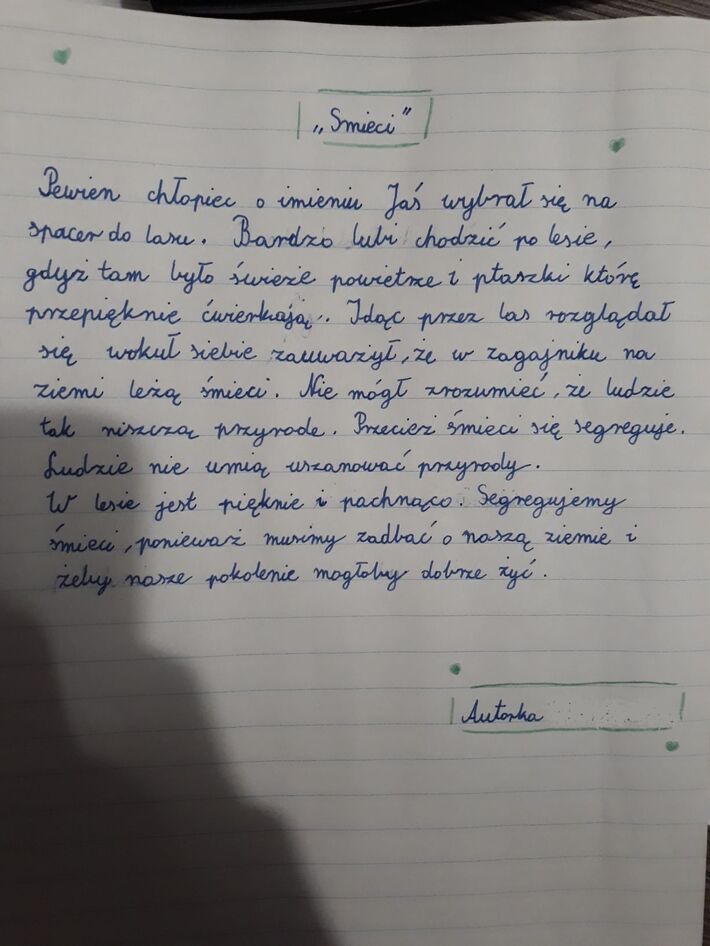 „Śmieci”
Pewien chłopiec o imieniu Jaś wybrał się na
spacer do lasu. Bardzo lubi chodzić po lesie,
gdyż tam było świeże powietrze i ptaszki którę
przepięknie ćwierkają. Idąc przez las rozglądał
się wokuł siebie zauważył, że w zagajniku na
ziemi leżą śmieci. Nie mógł zrozumieć, że ludzie
tak niszczą przyrode. Przecież śmieci się segreguje.
Ludzie nie umią uszanować przyrody.
W lesie jest pięknie i pachnąco. Segregujemy
śmieci, ponieważ musimy zadbać o naszą ziemie i
żeby nasze pokolenie mogłoby dobrze żyć.
Autorka